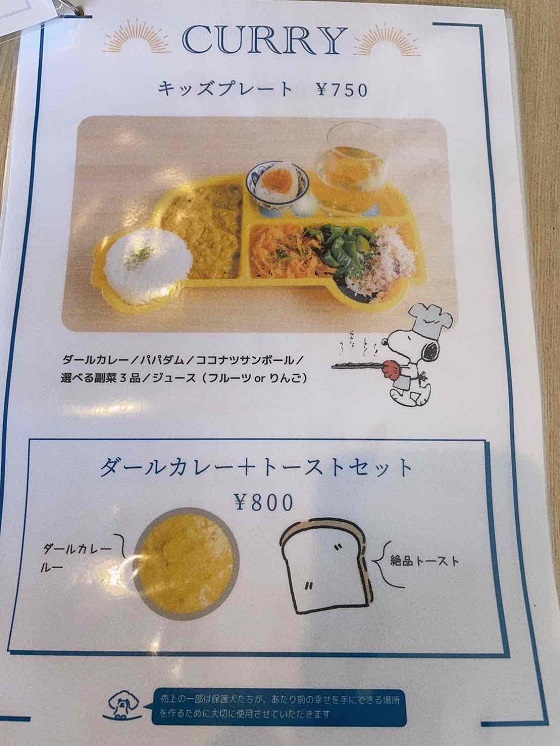 CURRY
キッズプレート ¥750
ダールカレー／パパダム／ココナツサンボール／
選べる副菜3品／ジュース（フルーツ or りんご）
ダールカレー＋トーストセット
¥800
ダールカレー
ルー
絶品トースト
売上の一部は保護犬たちが、あたり前の幸せを手にできる場所
を作るために大切に使用させていただきます